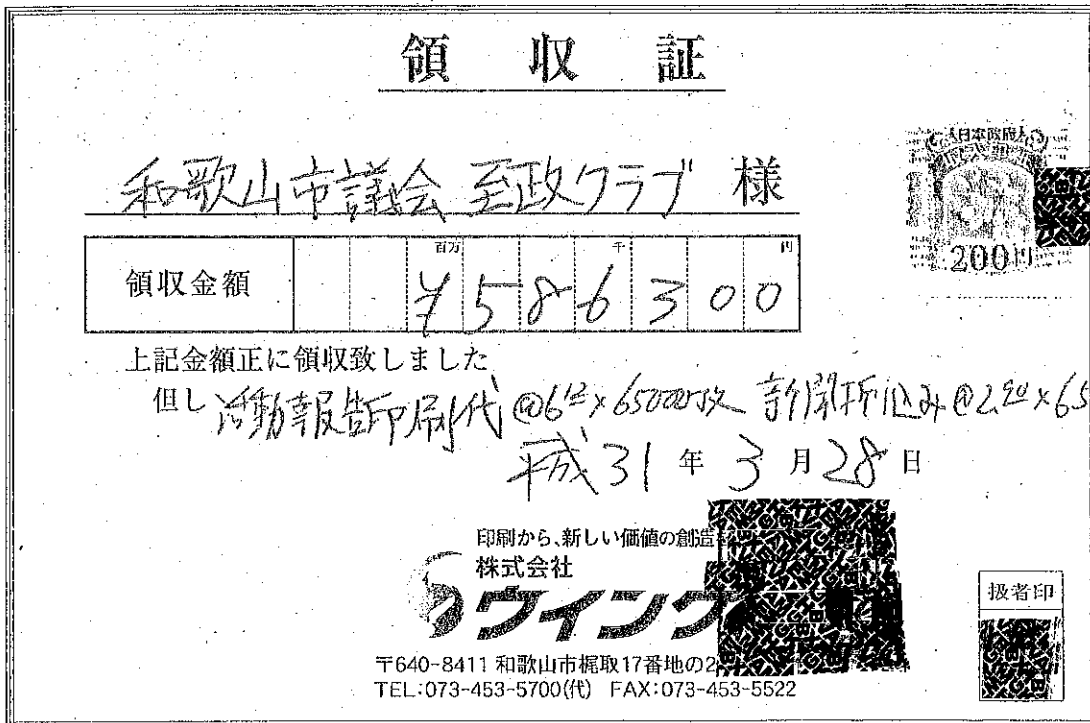 領収証
日本政府
200円
和歌山市議会 至政クラブ 様
百万 千 円
領収金額 ¥586300
上記金額正に領収致しました
但し 活動報告印刷代 @6.12×65000枚 新聞折込み @2.90×65
平成31年3月28日
印刷から、新しい価値の創造
株式会社
ウイング
〒640-8411 和歌山市梶取17番地の2
TEL:073-453-5700(代) FAX:073-453-5522
扱者印